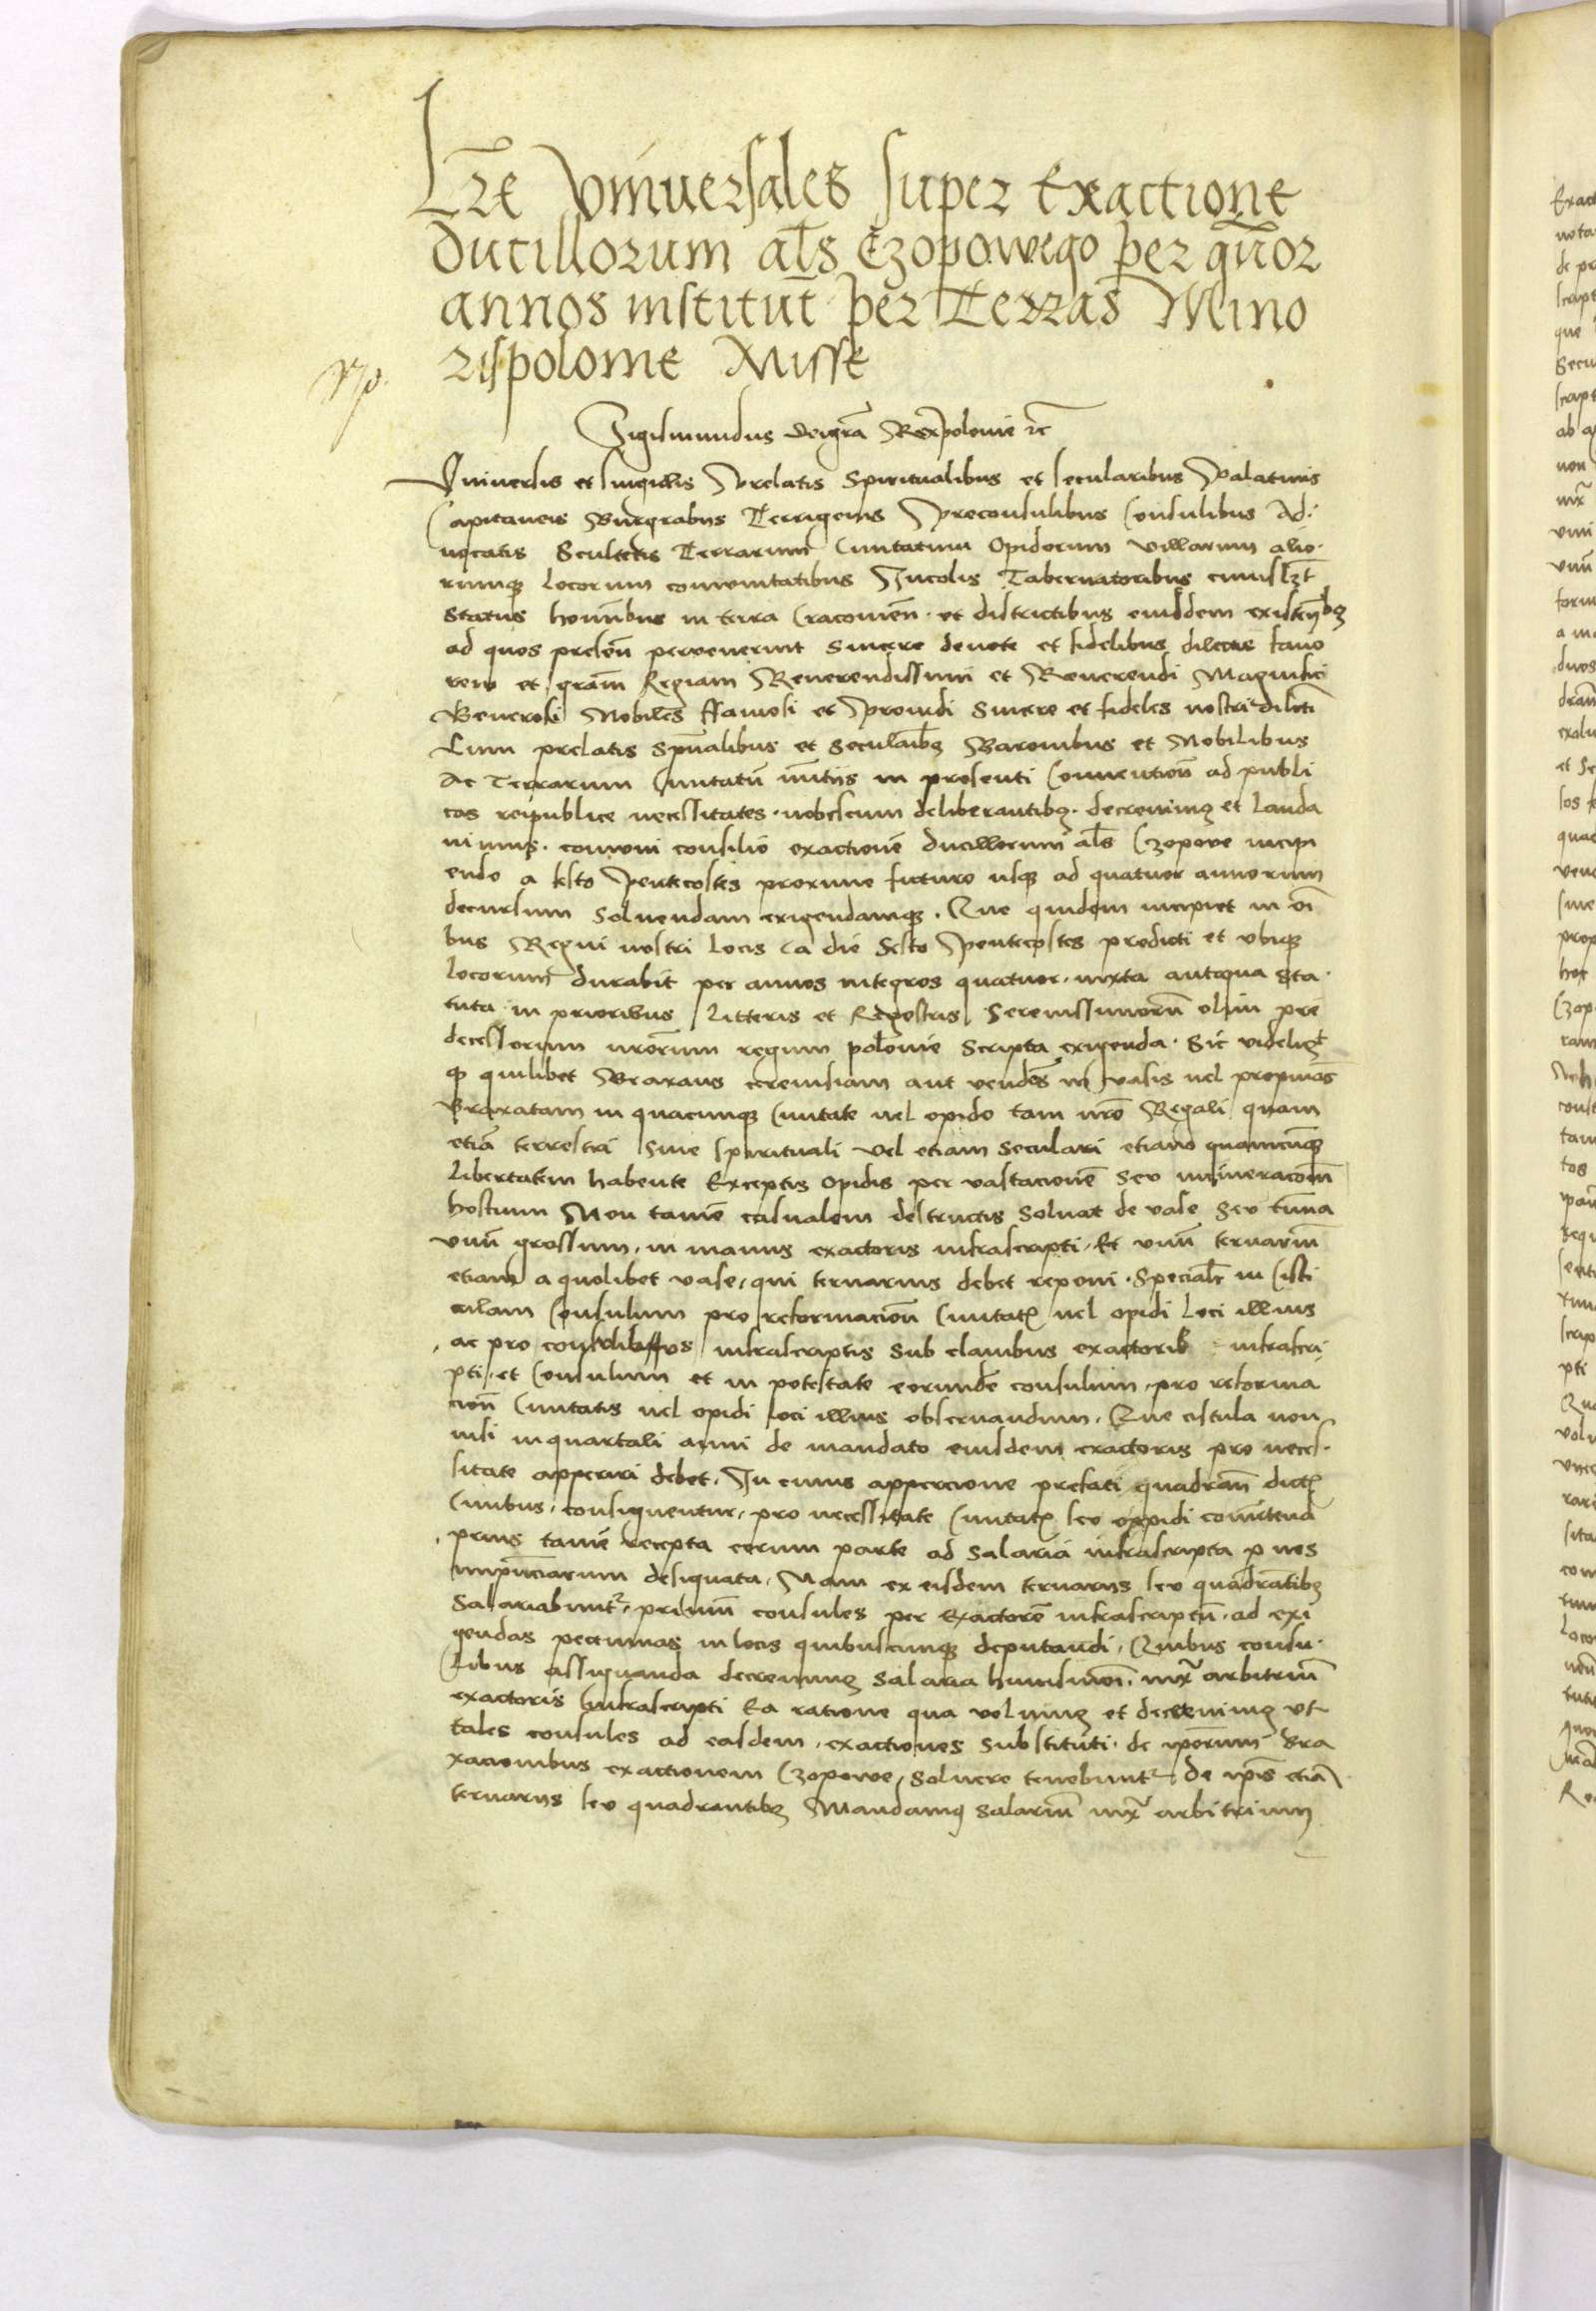 Lre Vniuersales super Exactione
Ducillorum als Czopowego per quor
annos institut per Terras Mino
rispolonie Misse
Sigismundus dei gra Rex polonie rc
Vniuersis et singulis Prelatis Spiritualibus et secularibus Palatinis
Capitaneis Burgrabys Terrigenis Preconsulibus Consulibus Ad
uocatis Scultetis Terrarum Ciuitatum Opidorum villarum alio
rumq locorum comunitatibus Incolis Tabernatoribus cuiuslzt
status hominibus in terra Cracouien et districtibus eiusdem existentibq
ad quos presen peruenerint sincere deuote et fidelibus dilectis fauo
rem et gram Regiam Reuerendissimi et Reuerendi Magnifici
Generosi Nobiles ffamosi et prouidi Sincere et fideles nostri dilecti
Cum prelatis spualibus et seculaibq Baronibus et Nobilibus
Ac Terrarum Ciuitatu nuntiis in presenti Conuention ad publi
cas reipublice necessitates nobiscum deliberantibq decreuimq et lauda
uimus comuni consilio exactione ducillorum als Czopowe incipi
endo a festo Pentecostes proxime futuro usq ad quatuor annorum
decursum soluendam exigendamq Que quidem incipiet in oi
bus Regni nostri locis a die festo Pentecostes predicti et vbiq
locorum durabit per annos integros quatuor iuxta antiqua sta
tuta in prioribus litteris et Regestris Serenissimoru olim pre
decessorum nrorum regum polonie scripta exigenda Sic videlizt
q quilibet Braxans ceruisiam aut vendes in vasis uel propinas
Braxatam in quacunq Ciuitate uel opido tam nro Regali quam
etia terrestri siue spirituali vel etiam seculari etiam quamcunq
libertatem habente Exceptis opidis per vastacione seu incineracom
hostium Non tame casualem destructis soluat de vase seu tuna
vnu grossum in manus exactoris infrascripti Et vnu ternariu
etiam a quolibet vase qui ternarius debet reponi specialr in Cisti
culam Consulum pro reformacion Ciuitatis uel opidi loci illius
ac pro consulibus infrascriptis sub clauibus exactoris infrascri
pti et Consulum et in potestate eorunde consulum pro reforma
cion Ciuitatis uel opidi loci illius obseruandum Que cistula non
nisi in quartali anni de mandato eiusdem exactoris pro neces
sitate apperiri debet In cuius appercione prefati quadran dictis
Ciuibus consignentur pro necessitate Ciuitatis seu oppidi conuertend
prius tame recepta eorum parte ad salaria infrascripta p nos
designata Nam ex eisdem ternariis seu quadratibq
Salariabuntr primu consules per Exactore infrascriptu ad exi
gendas pecunias in locis quibuscunq deputandi Quibus consu
libus assignanda decreuimq salaria huiusmoi iuxr arbitriu
exactoris Infrascripti Ea ratione qua volumq et decreuimq vt
tales consules ad easdem exactiones substituti de ipsorum bra
xacionibus exactionem Czopowe soluere tenebuntr de ipsis etia
ternariis seu quadrantibq Mandamq salariu iuxr arbitrium